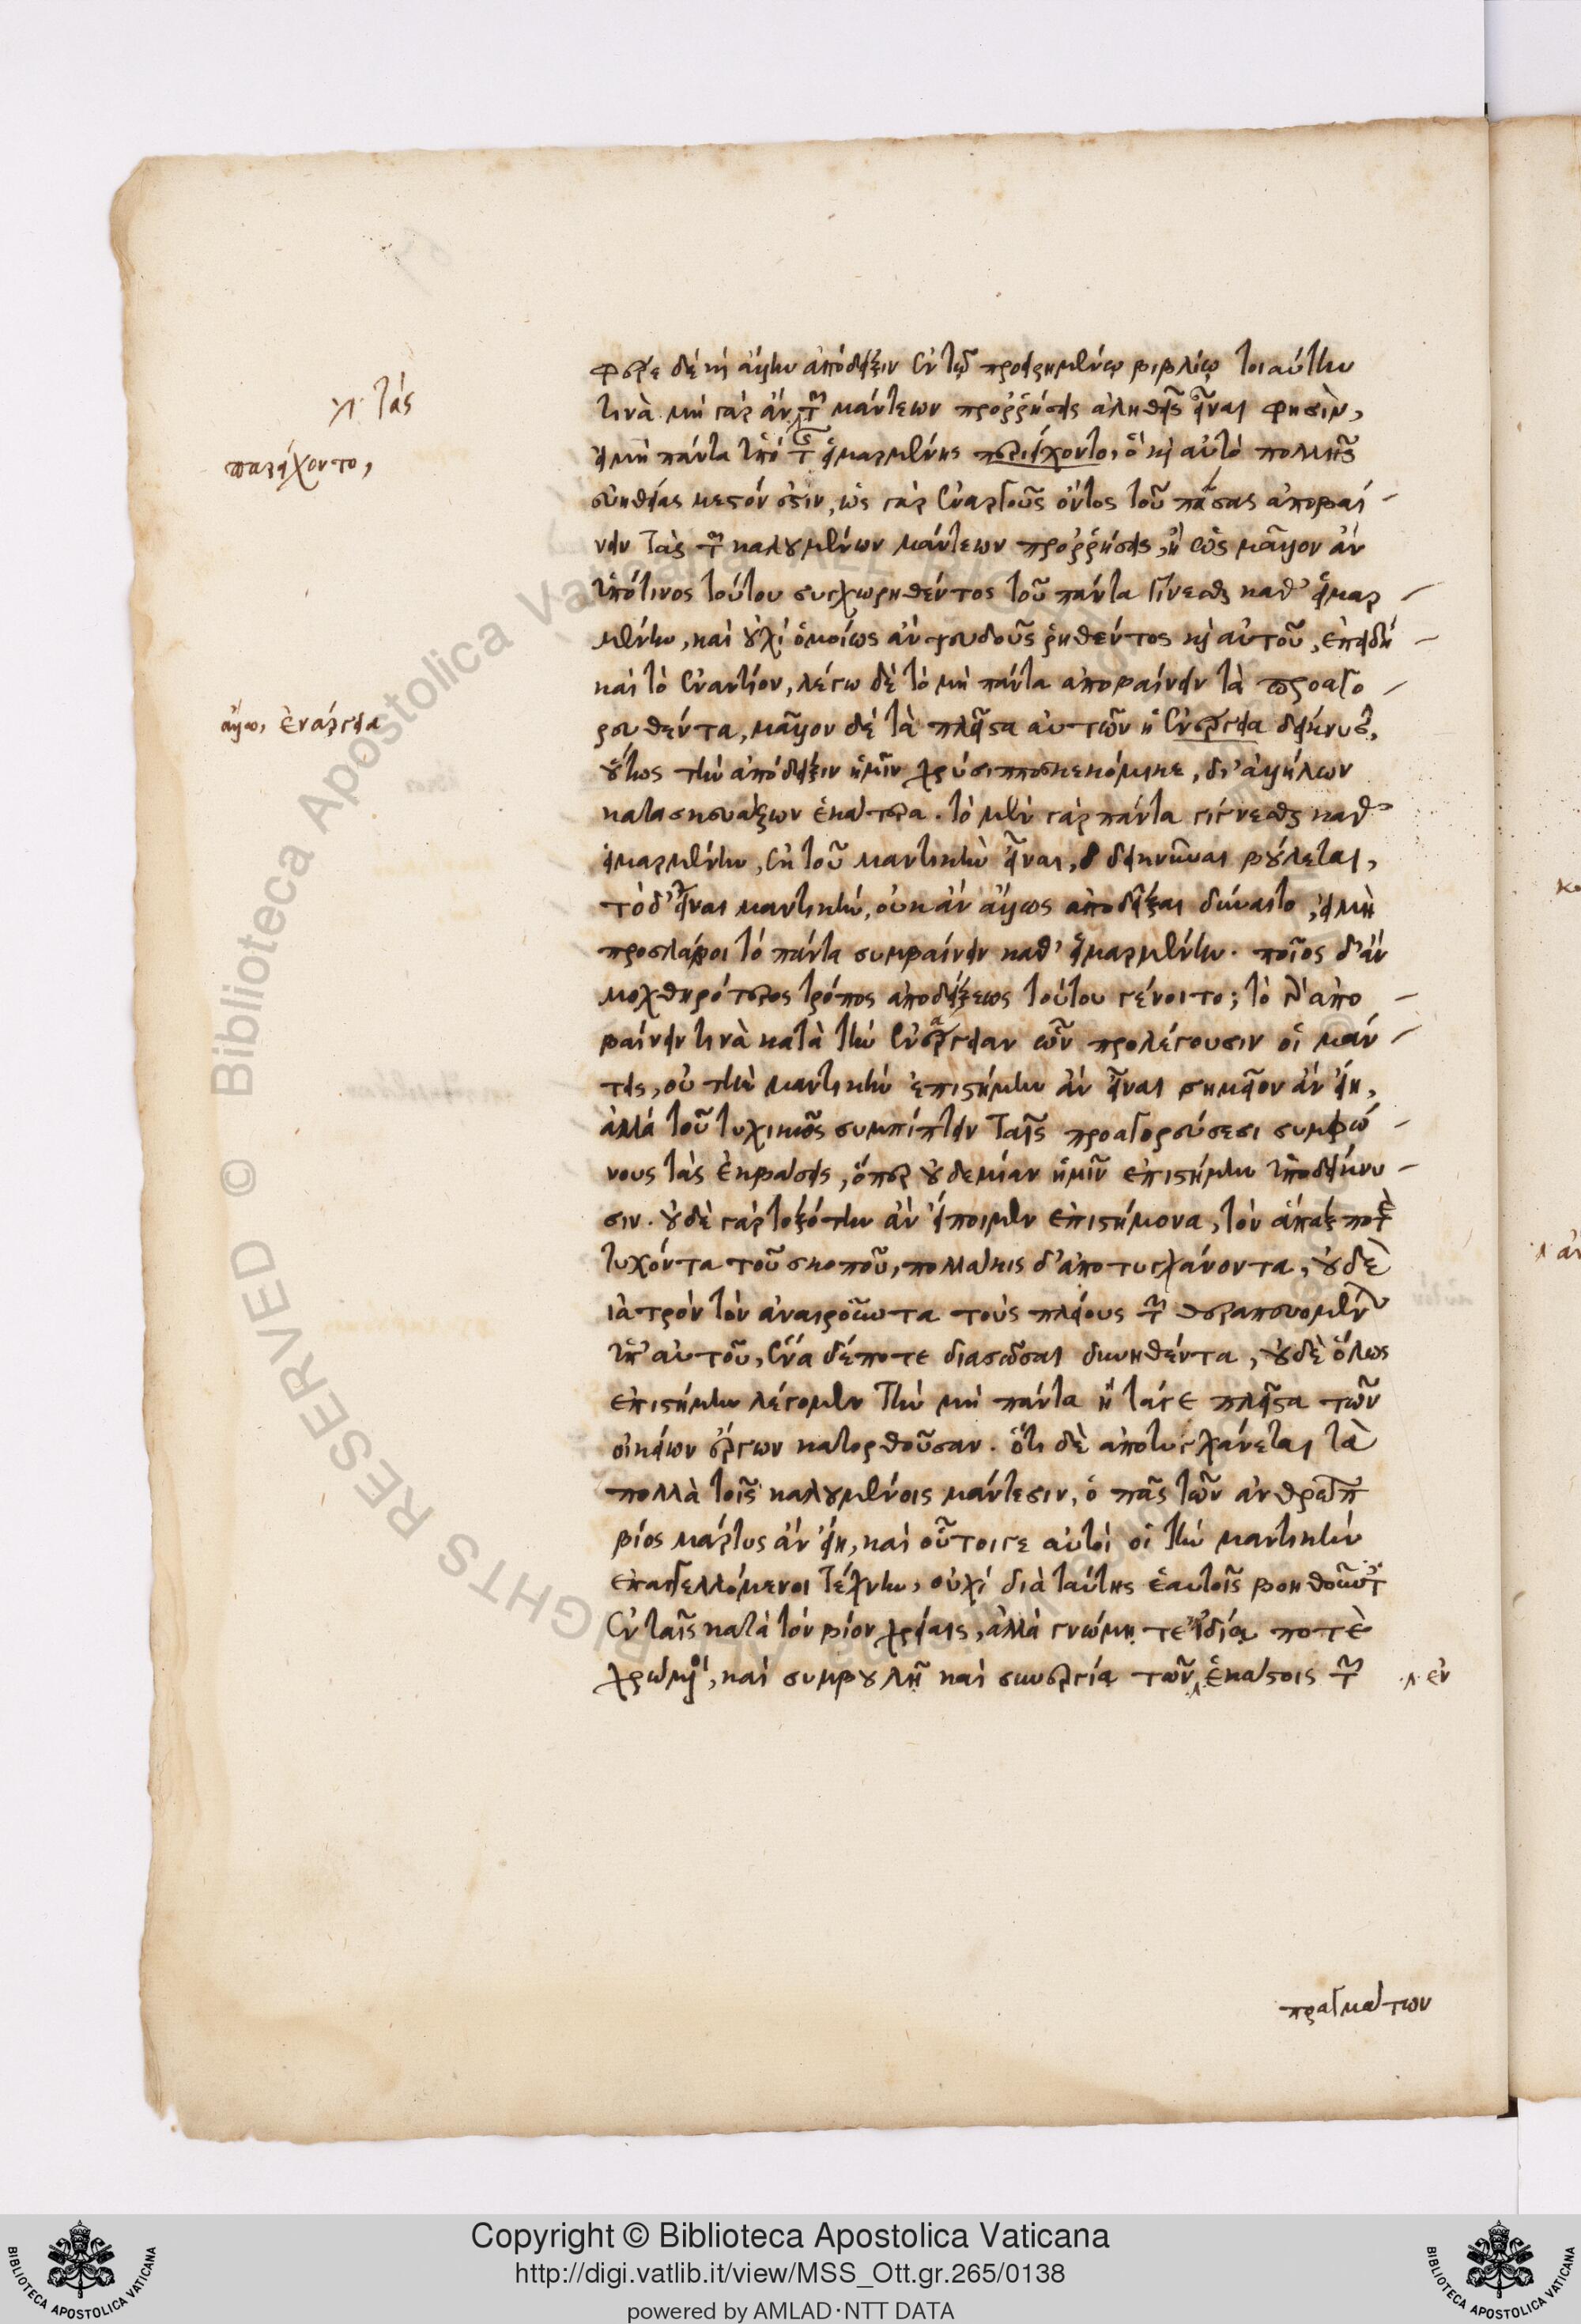 λ. τὰς
παρείχοντο,
ἄλλο, ἐνάργεια
φέρε δὲ καὶ ἄλλην ἀπόδειξιν ἐν τῷ προειρημένῳ βιβλίῳ τοιαύτην
τινὰ. μὴ γὰρ ἂν τῶν μάντεων προῤῥήσεις ἀληθεῖς εἶναι φησὶν,
εἰ μὴ πάντα ὑπὸ τῆς εἱμαρμένης περιέχοντο, ὃ καὶ αὐτὸ πολλῆς
εὐηθείας μεστόν ἐστιν, ὡς γὰρ ἐναργοῦς ὄντος τοῦ πάσας ἀποβαί
νειν τὰς τῶν καλουμένων μάντεων προῤῥήσεις, ἢ ὡς μᾶλλον ἂν
ὑπό τινος τούτου συγχωρηθέντος τοῦ πάντα γίνεσθαι καθ' εἱμαρ
μένην, καὶ οὐχὶ ὁμοίως ἂν ψευδοῦς ῥηθέντος καὶ αὐτοῦ, ἐπειδὴ
καὶ τὸ ἐναντίον, λέγω δὲ τὸ μὴ πάντα ἀποβαίνειν τὰ προαγο
ρευθέντα, μᾶλλον δὲ τὰ πλεῖστα αὐτῶν ἡ ἐνέργεια δείκνυσι,
οὕτως τὴν ἀπόδειξιν ἡμῖν χρύσιππος κεκόμικε, δι' ἀλλήλων
κατασκευάζων ἑκάτερα. τὸ μὲν γὰρ πάντα γίγνεσθαι καθ'
εἱμαρμένην, ἐκ τοῦ μαντικὴν εἶναι, δεικνύναι βούλεται,
τὸ δ' εἶναι μαντικὴν, οὐκ ἂν ἄλλως ἀποδεῖξαι δύναιτο, εἰ μὴ
προσλάβοι τὸ πάντα συμβαίνειν καθ' εἱμαρμένην. ποῖος δ' ἂν
μοχθηρότερος τρόπος ἀποδείξεως τούτου γένοιτο; τὸ γὰρ ἀπο
βαίνειν τινὰ κατὰ τὴν ἐνέργειαν ὧν προλέγουσιν οἱ μάν
τεις, οὐ τὴν μαντικὴν ἐπιστήμην ἂν εἶναι σημεῖον ἂν εἴη,
ἀλλὰ τοῦ τυχικῶς συμπίπτειν ταῖς προαγορεύσεσι συμφώ
νους τὰς ἐκβάσεις, ὅπερ οὐδεμίαν ἡμῖν ἐπιστήμην ὑποδείκνυ
σιν. οὐδὲ γὰρ τοξότην ἂν εἴποιμεν ἐπιστήμονα, τὸν ἅπαξ ποτὲ
τυχόντα τοῦ σκοποῦ, πολλάκις δ' ἀποτυγχάνοντα, οὐδὲ
ἰατρὸν τὸν ἀναιροῦντα τοὺς πλείους τῶν θεραπευομένων
ὑπ' αὐτοῦ, ἕνα δέ ποτε διασῶσαι δυνηθέντα, οὐδὲ ὅλως
ἐπιστήμην λέγομεν τὴν μὴ πάντα ἢ τά γε πλεῖστα τῶν
οἰκείων ἔργων κατορθοῦσαν. ὅτι δὲ ἀποτυγχάνεται τὰ
πολλὰ τοῖς καλουμένοις μάντεσιν, ὁ πᾶς τῶν ἀνθρώπων
βίος μάρτυς ἂν εἴη, καὶ οὗτοί γε αὐτοὶ οἱ τὴν μαντικὴν
ἐπαγγελλόμενοι τέχνην, οὐχὶ διὰ ταύτης ἑαυτοῖς βοηθοῦντες
ἐν ταῖς κατὰ τὸν βίον χρείαις, ἀλλὰ γνώμῃ τε ἰδίᾳ ποτὲ
χρώμενοι, καὶ συμβουλῇ καὶ συνεργίᾳ τῶν ἑκάστοις τῶν λ. ἐν
πραγμάτων
Copyright © Biblioteca Apostolica Vaticana
http://digi.vatlib.it/view/MSS_Ott.gr.265/0138
powered by AMLAD·NTT DATA